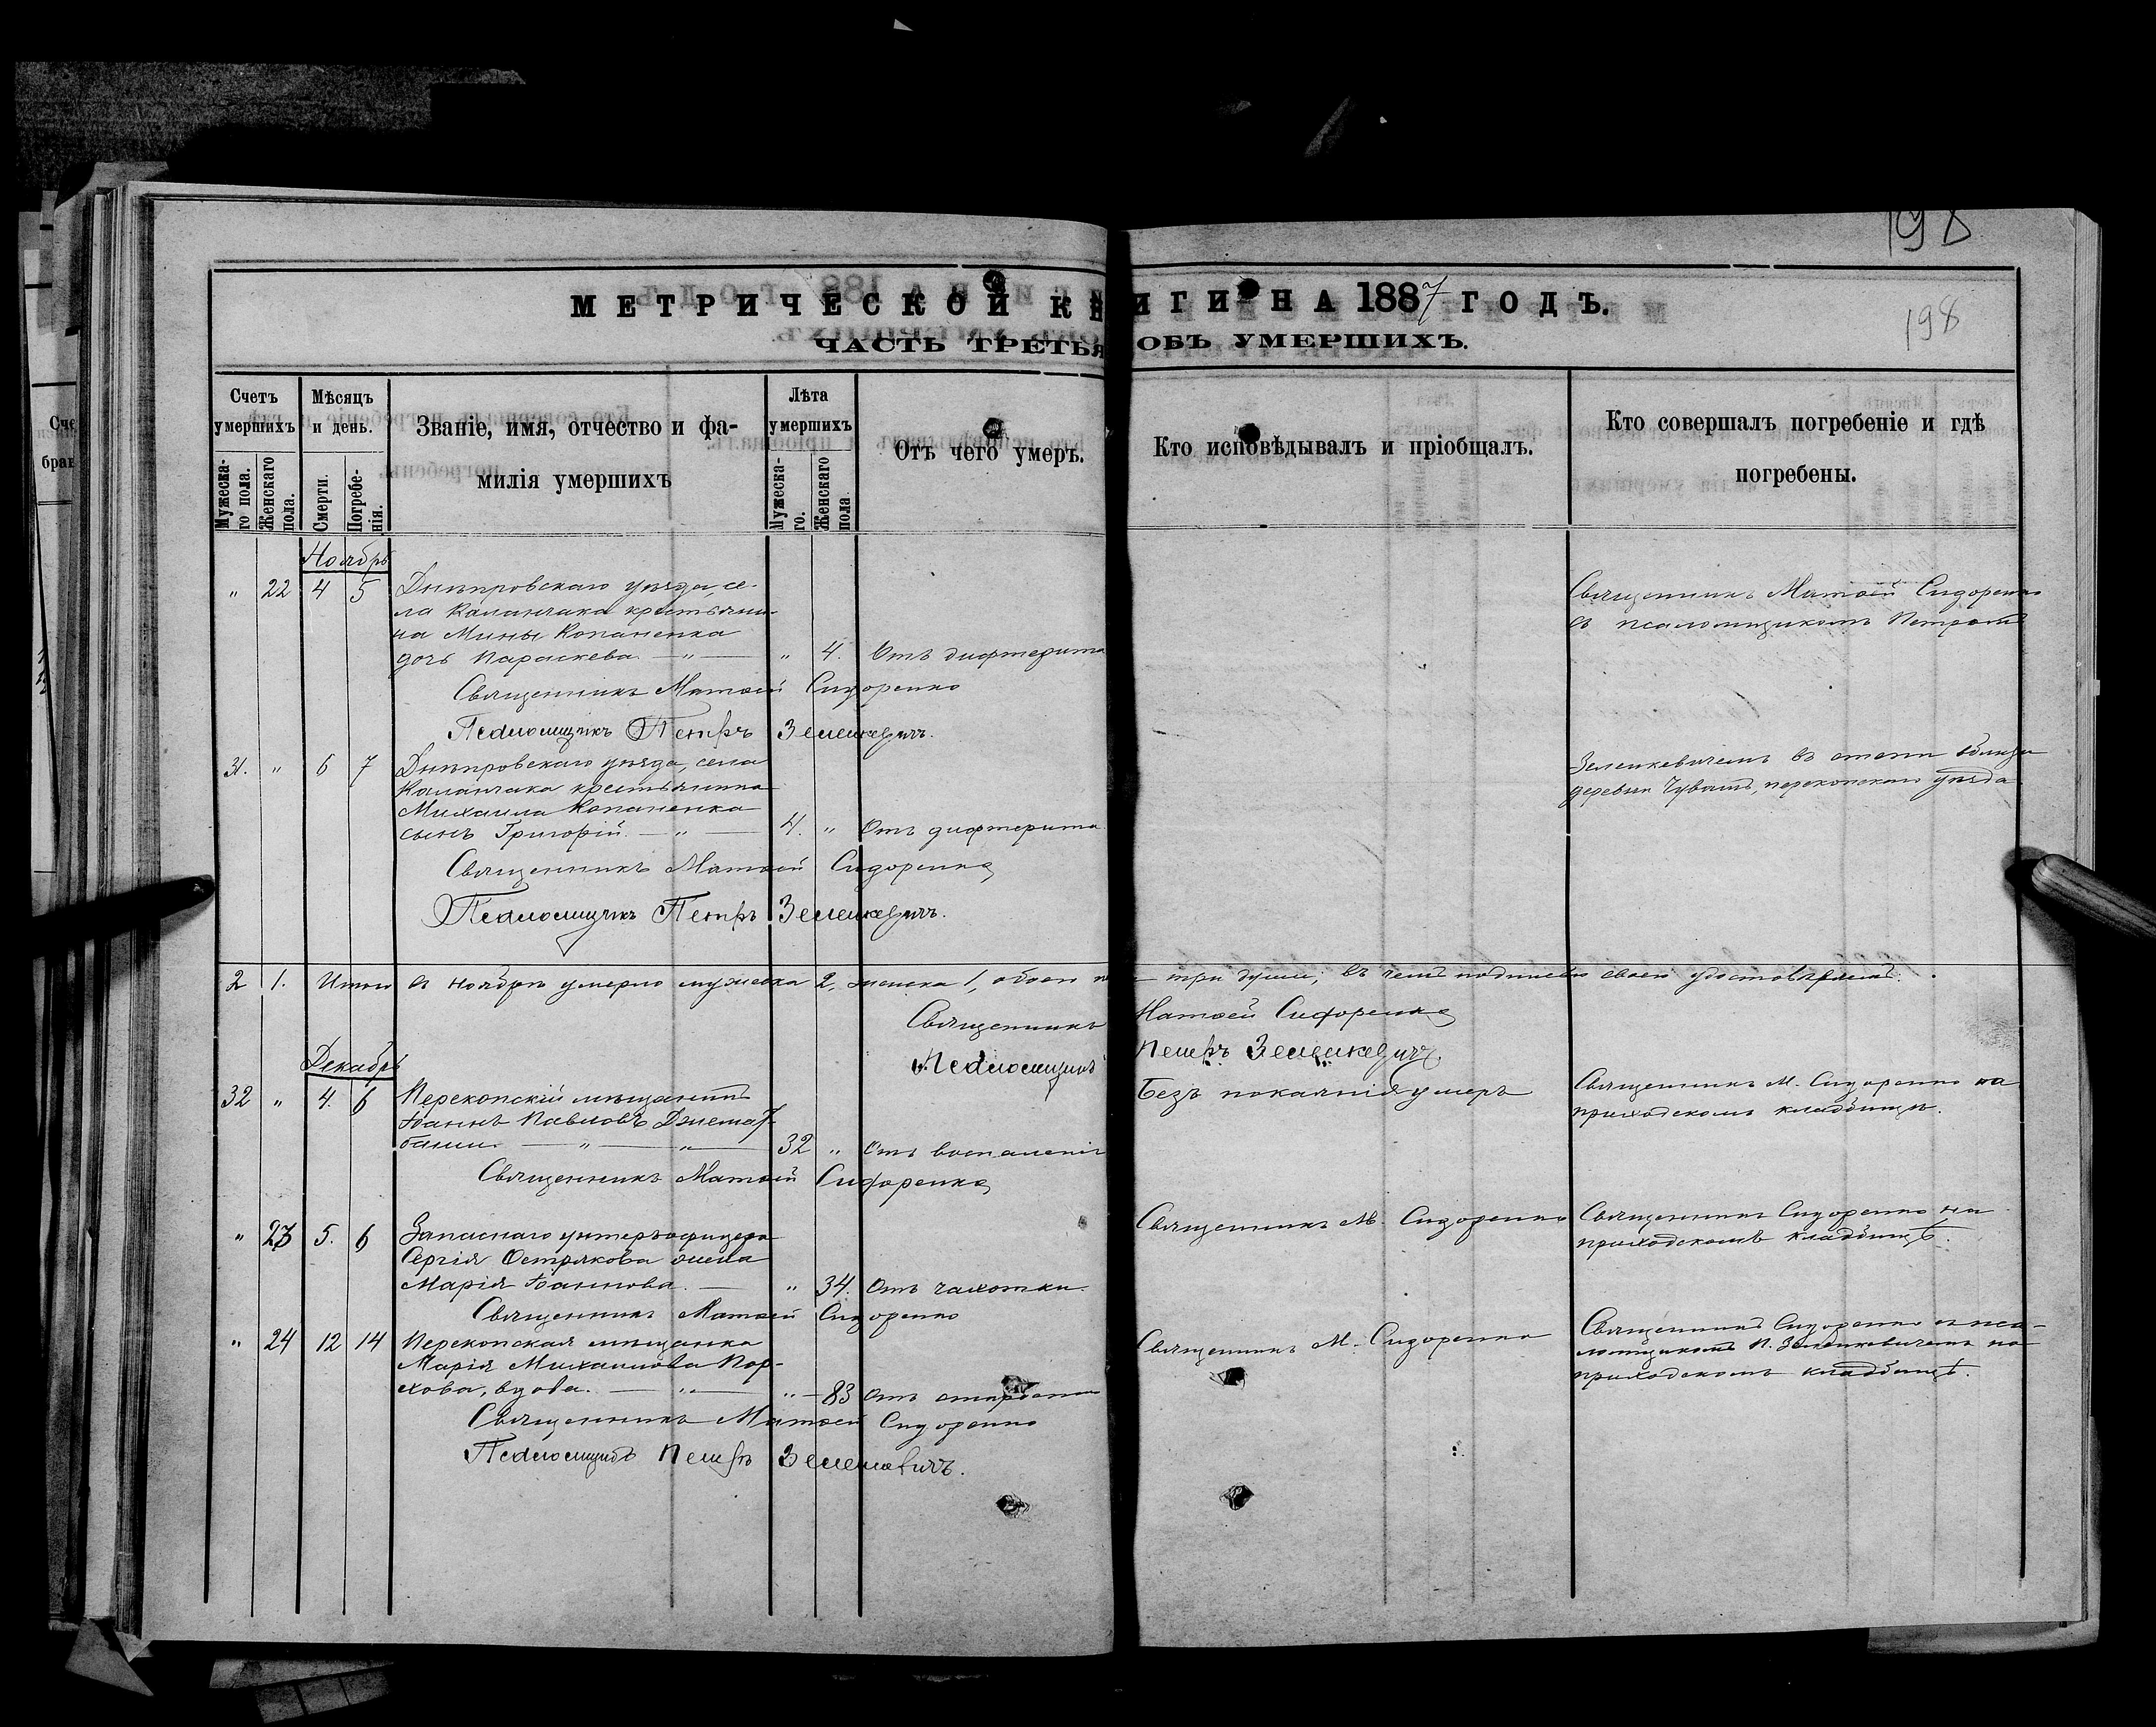 198
198
МЕТРИЧЕСКОЙ КНИГИ НА 1887 ГОДЪ.
ЧАСТЬ ТРЕТЬЯ ОБЪ УМЕРШИХЪ.
Счетъ умершихъ
Мужеска-го пола.
Женскаго пола.
Мѣсяцъ и день.
Смерти.
Погребе-нія.
Званіе, имя, отчество и фа-
милія умершихъ
Лѣта умершихъ
Мужеска-го.
Женскаго пола
Отъ чего умеръ.
Кто исповѣдывалъ и пріобщалъ.
Кто совершалъ погребеніе и гдѣ
погребены.
Ноябрь
" 22 4 5 Днѣпровскаго уѣзда, се-
ла Каланчака крестьяни-
на Мины Копаненка
дочь Параскева — " — " 4. Отъ дифтерита
Священникъ Матѳей Сидоренко
съ псаломщикомъ Петромъ
Священникъ Матѳей Сидоренко
Псаломщикъ Петръ Зеленкевичъ.
31. " 6 7 Днѣпровскаго уѣзда, села
Каланчака крестьянина
Михаила Копаненка
сынъ Григорій — " — 4. " Отъ дифтерита
Зеленкевичемъ въ степи вблизи
деревни Чувашъ, перекопскаго уѣзда
Священникъ Матѳей Сидоренко
Псаломщикъ Петръ Зеленкевичъ.
2 1. Итого въ ноябрѣ умерло мужеска 2, женска 1, обоего — три души; въ чемъ подписью своею удостовѣряемъ.
Священникъ Матѳей Сидоренко
Псаломщикъ Петръ Зеленкевичъ.
Декабрь
32 " 4. 6 Перекопскій мѣщанинъ
Іоаннъ Павловъ
— " — " — 32 " Отъ воспаленія
Безъ покаянія умеръ
Священникъ М. Сидоренко на
приходскомъ кладбищѣ.
Священникъ Матѳей Сидоренко
" 23 5. 6 Запаснаго унтеръ-офицера
Сергія Острякова жена
Марія Іоаннова — " 34. Отъ чахотки.
Священникъ М. Сидоренко
Священникъ Сидоренко на
приходскомъ кладбищѣ.
Священникъ Матѳей Сидоренко
" 24 12 14 Перекопская мѣщанка
Марія Михаилова Пор-
хова, вдова. — " — " — 83 Отъ старости
Священникъ М. Сидоренко
Священникъ Сидоренко съ пса-
ломщикомъ П. Зеленкевичемъ на
приходскомъ кладбищѣ.
Священникъ Матѳей Сидоренко
Псаломщикъ Петръ Зеленкевичъ.